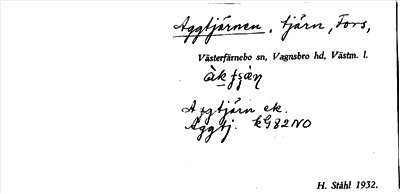 Aggtjärnen, tjärn, Fors,
Västerfärnebo sn, Vagnsbro hd, Västm. l.
Aggtjärn ek.
Aggtj. kG82NO
H. Ståhl 1932.